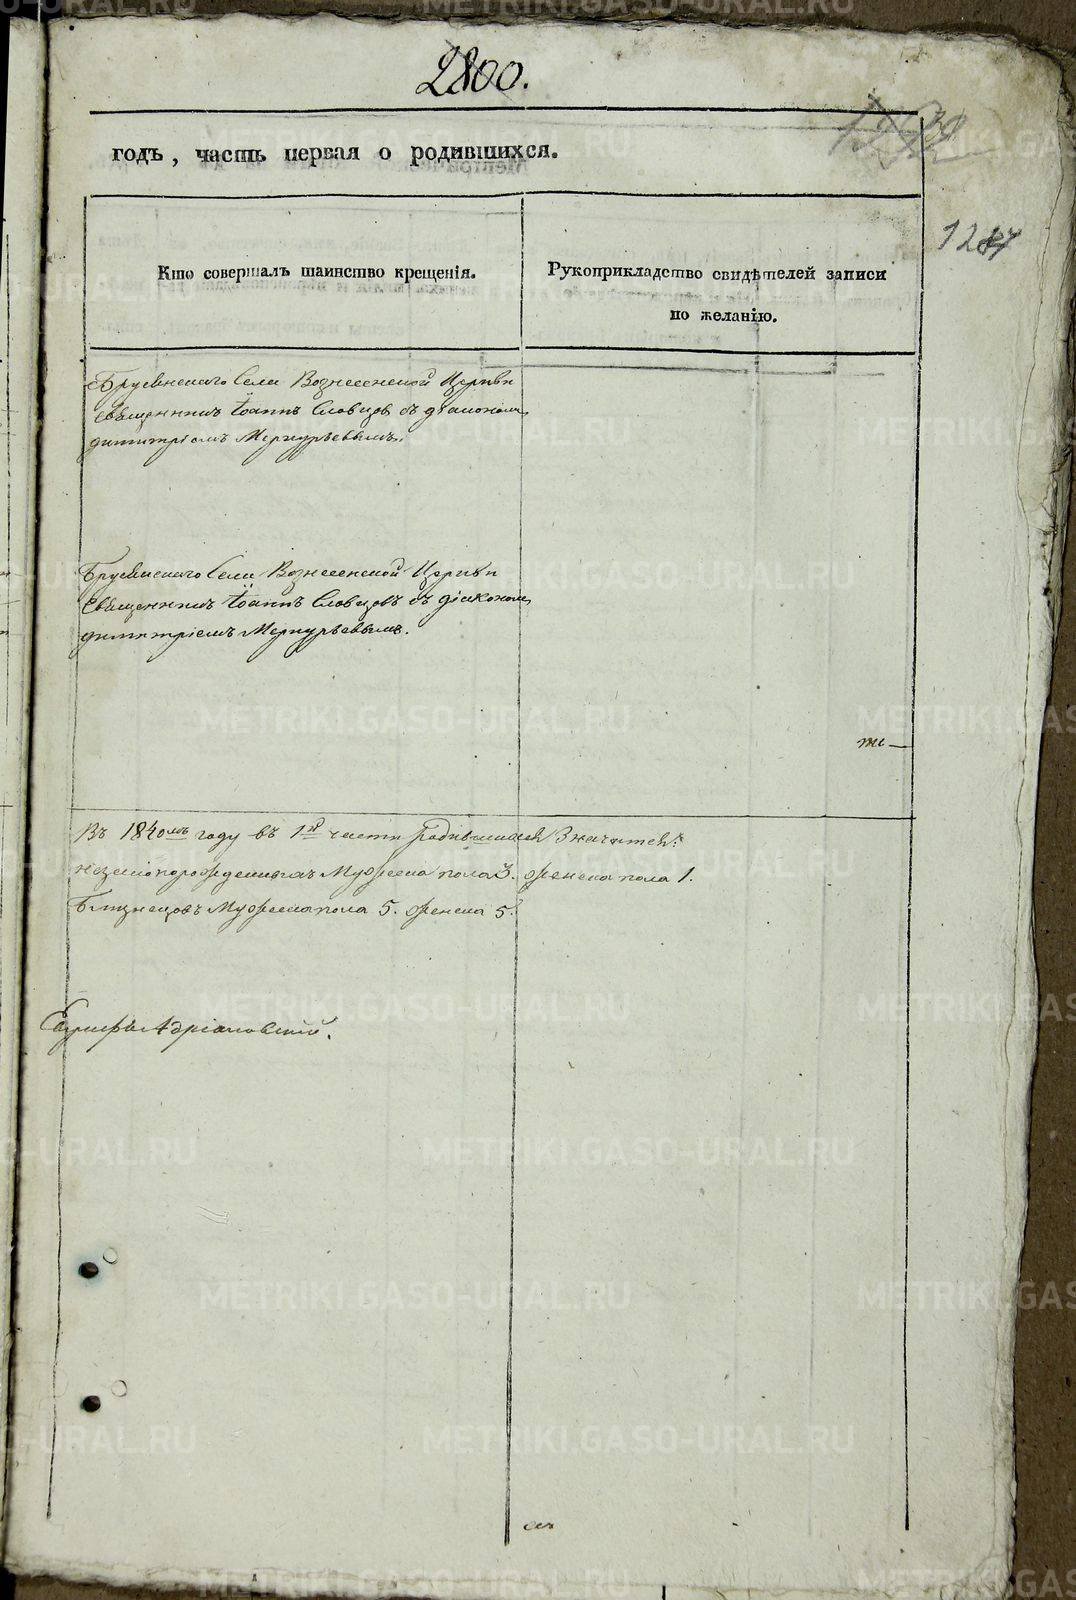 2800.
1287
годъ, часть первая о родившихся.
Кто совершалъ таинство крещенія.
Рукоприкладство свидѣтелей записи
по желанію.
Брусянскаго Села Вознесенской Церкви
Священникъ Іоаннъ Словцовъ съ діакономъ
Димитріемъ Меркурьевымъ.
Брусянскаго Села Вознесенской Церкви
Священникъ Іоаннъ Словцовъ съ діакономъ
Димитріемъ Меркурьевымъ.
Въ 1840мъ году въ 1й части Родившихся Значится:
незаконорожденныхъ Мужеска пола 3. женска пола 1.
Близнецовъ Мужеска пола 5. женска 5.
METRIKI.GASO-URAL.RU